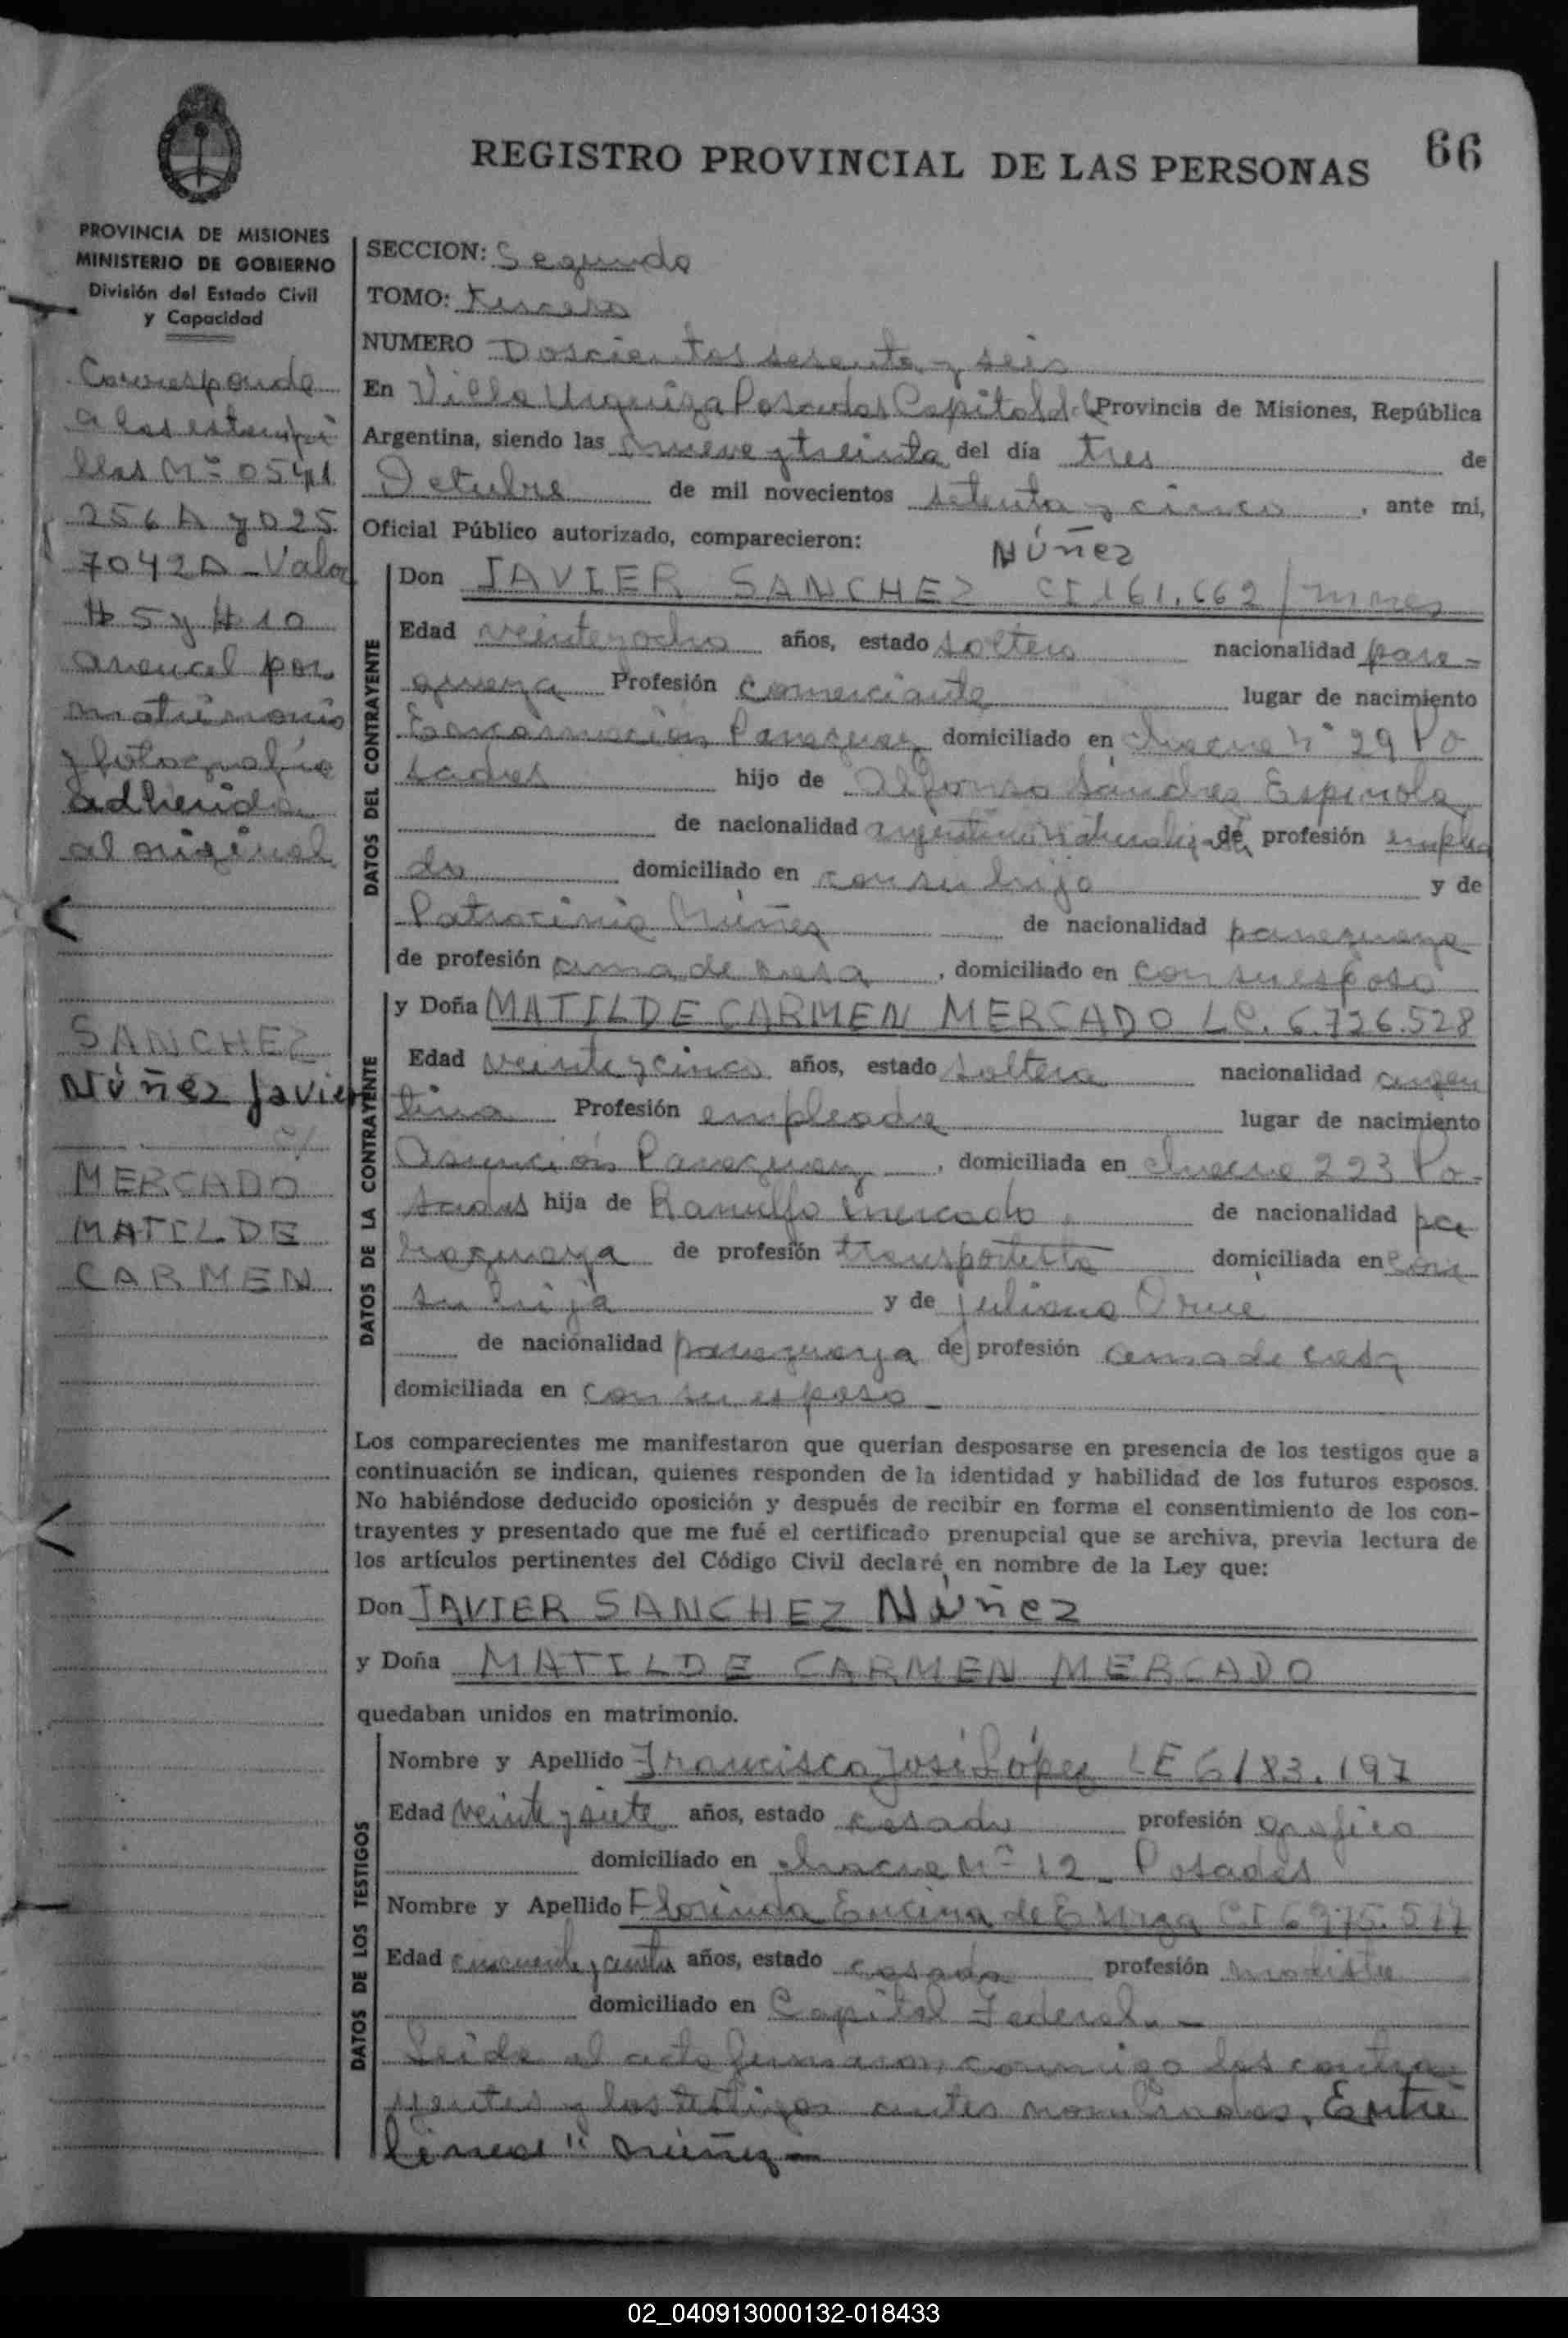 66
REGISTRO PROVINCIAL DE LAS PERSONAS
PROVINCIA DE MISIONES
MINISTERIO DE GOBIERNO
División del Estado Civil
y Capacidad
Corresponde
a las estampi
llas Nº 0541
256 A y 025
7042 A - Valor
$ 5 y $ 10
arencel por
matrimonio
y fotografía
adherida
al original
SANCHEZ
Núñez Javier
MERCADO
MATILDE
CARMEN
SECCION: Segunda
TOMO: Tercero
NUMERO Doscientos sesenta y seis
En Villa Urquiza Posadas Capital de la Provincia de Misiones, República
Argentina, siendo las nueve y treinta del día tres de
Octubre de mil novecientos setenta y cinco, ante mi,
Oficial Público autorizado, comparecieron:
Núñez
DATOS DEL CONTRAYENTE
Don JAVIER SANCHEZ CI 161.662/
Edad veinte y ocho años, estado soltero nacionalidad para-
guaya Profesión comerciante lugar de nacimiento
Encarnación Paraguay domiciliado en chacra Nº 29 Po
sadas hijo de Alfonso Sánchez Espínola
de nacionalidad argentino naturalizado de profesión emplea
do domiciliado en con su hijo y de
Patrocinia Núñez de nacionalidad paraguaya
de profesión ama de casa, domiciliado en con su esposo
DATOS DE LA CONTRAYENTE
y Doña MATILDE CARMEN MERCADO LC. 6.726.528
Edad veinte y cinco años, estado soltera nacionalidad argen
tina Profesión empleada lugar de nacimiento
Asunción Paraguay, domiciliada en chacra 223 Po-
sadas hija de Ranulfo Mercado, de nacionalidad pa
raguaya de profesión transportista domiciliada en con
su hija y de Juliana Orué
de nacionalidad paraguaya de profesión ama de casa
domiciliada en con su esposo -
Los comparecientes me manifestaron que querían desposarse en presencia de los testigos que a
continuación se indican, quienes responden de la identidad y habilidad de los futuros esposos.
No habiéndose deducido oposición y después de recibir en forma el consentimiento de los con-
trayentes y presentado que me fué el certificado prenupcial que se archiva, previa lectura de
los artículos pertinentes del Código Civil declaré en nombre de la Ley que:
Don JAVIER SANCHEZ Núñez
y Doña MATILDE CARMEN MERCADO
quedaban unidos en matrimonio.
DATOS DE LOS TESTIGOS
Nombre y Apellido Francisco José López LE 6183.197
Edad veinte y siete años, estado casado profesión gráfico
domiciliado en chacra Nº 12 - Posadas
Nombre y Apellido Florinda Encina de CI
Edad cincuenta y años, estado casada profesión modista
domiciliado en Capital Federal. -
Leida el acta firmaron conmigo los contra
yentes y los testigos antes nombrados. Entre
líneas "Núñez -
02_040913000132-018433